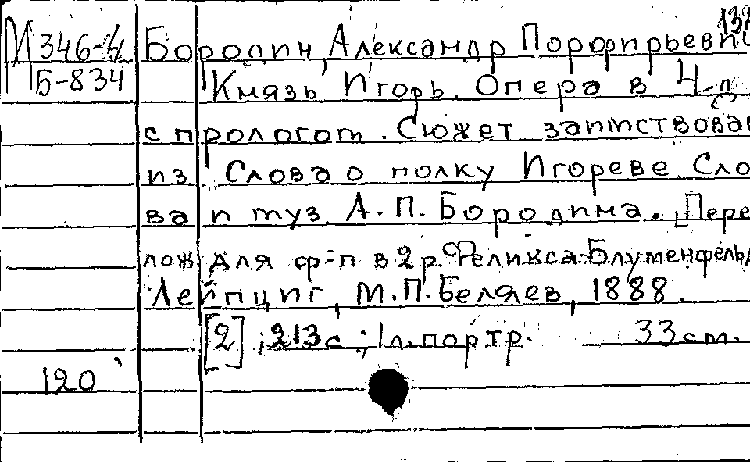 М 346-4/ Бородин, Александр Порфирьевич
Б-834 Князь Игорь. Опера в 4 д.
с прологом. Сюжет заимствован
из "Слова о полку Игореве" Сло
ва и муз А.П. Бородина. Пере
лож для ф-п в 2 р. Феликса Блуменфельд
Лейпциг, М.П. Беляев, 1888.
[2], 213 с.; 1 л. портр. 33 см.
120